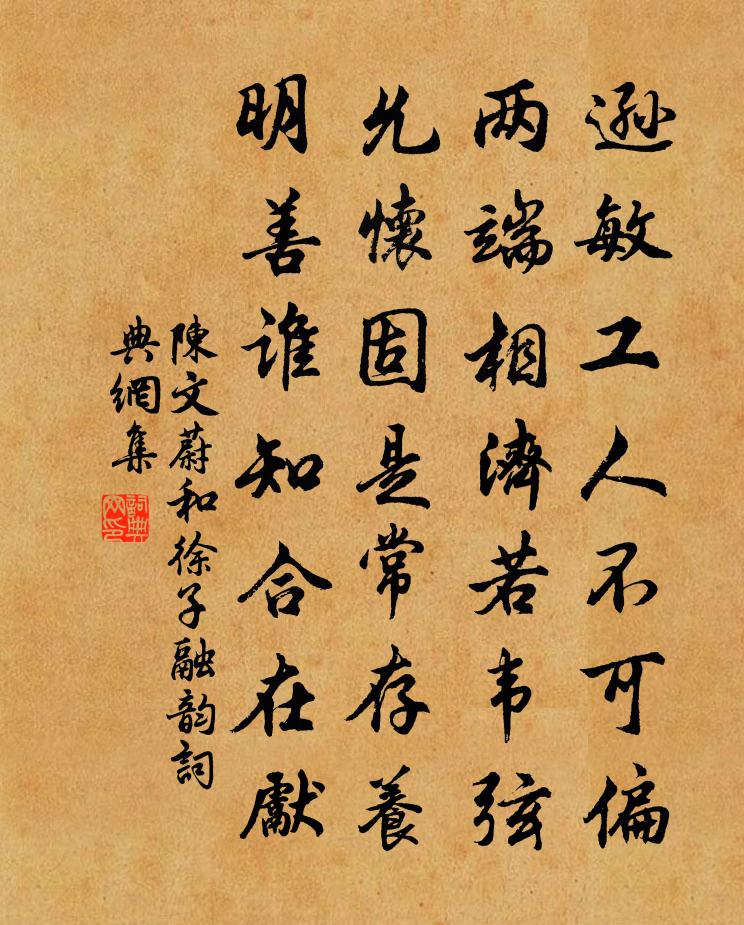 遜敏工人不可偏
两端相濟若韦弦
允懷固是常存養
明善誰知合在獻
陳文蔚和徐子融韵詞
典網集
詞典
网印